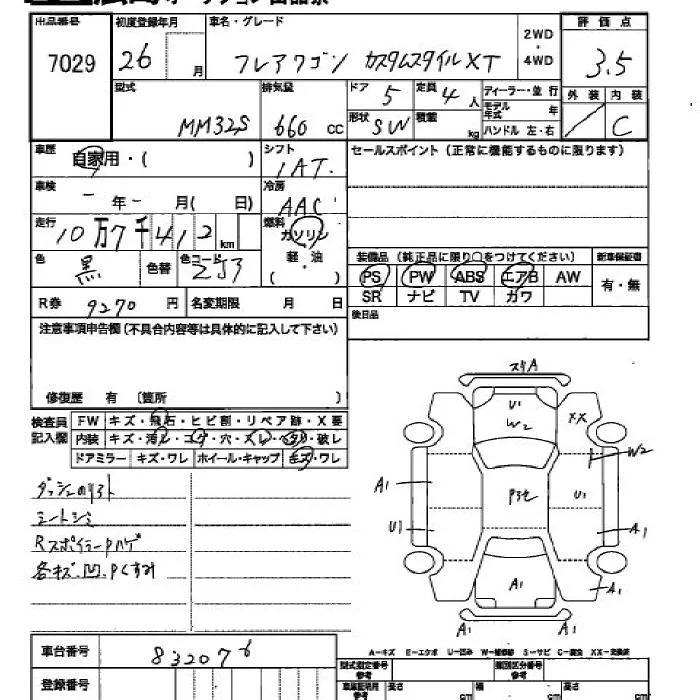 出品番号 初度登録年月 車名・グレード 2WD・4WD 評価点
7029 26 月 フレアワゴン カスタムスタイルXT 3.5
型式 排気量 ドア 5 定員 4人 ディーラー・並行 外装 内装
モデル年式 年
MM32S 660 cc 形状 SW 積載 kg ハンドル 左・右 C
車歴 自家用・( ) シフト 1AT. セールスポイント (正常に機能するものに限ります)
車検 - 年 - 月( 日) 冷房 AAC
走行 10万7千412 km 燃料 ガソリン 軽・油 ( )
色 黒 色替 色コード ZJ3
装備品 (純正品に限り○をつけてください) 新車保証書
PS PW ABS エアB AW 有・無
SR ナビ TV カワ
R券 9270 円 名変期限 月 日 後日品
注意事項申告欄(不具合内容等は具体的に記入して下さい)
修復歴 有 〔箇所 〕
検査員記入欄 FW キズ・飛石・ヒビ割・リペア跡・X要
内装 キズ・汚レ・コゲ・穴・スレ・ヘタリ・破レ
ドアミラー キズ・ワレ ホイール・キャップ キズ・ワレ
シートシミ
RスポイラーPハゲ
各キズ.凹.Pくすみ
スリA
U1
W2
XX
W2
A1
U1
U1
A1
A1
A1
A1
A1
A-キズ E-エクボ U-凹み W-補修跡 S-サビ C-腐食 XX-交換済
車台番号 832076
型式指定番号 参考 類別区分番号 参考
登録番号 車庫証明用 参考 長さ cm 幅 cm 高さ cm